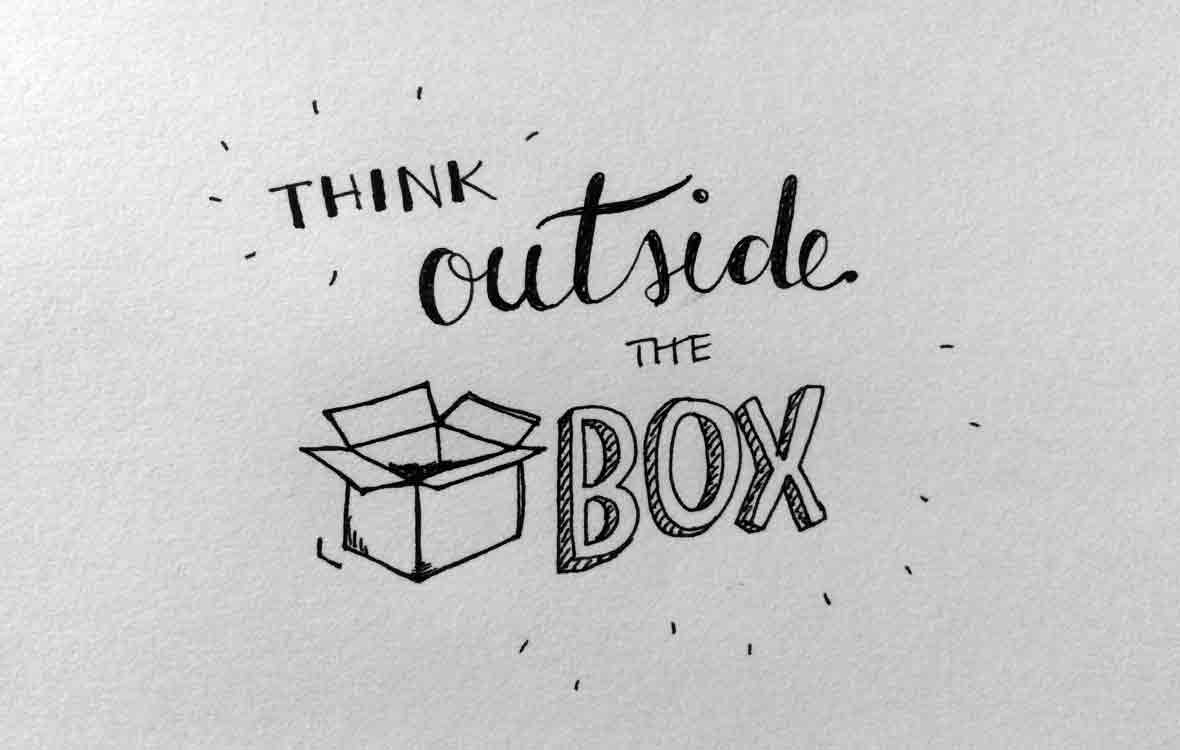 THINK
outside
THE
BOX